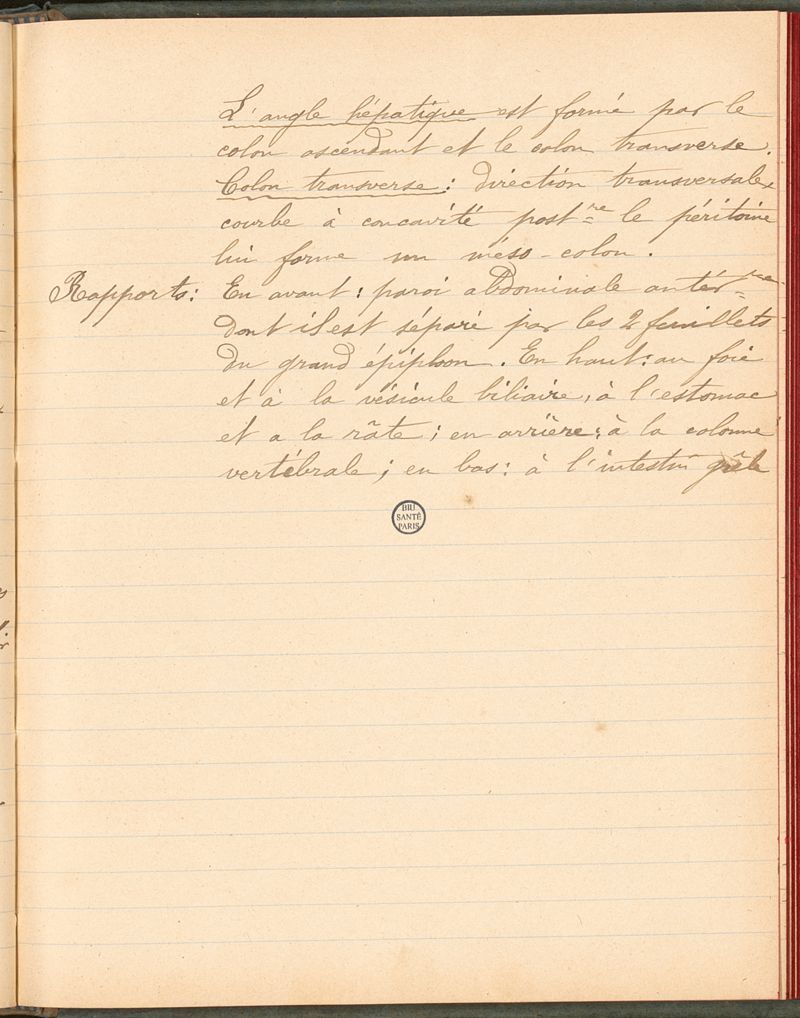 L'angle hépatique est formé par le
colon ascendant et le colon transverse.
Colon transverse : direction transversale,
courbe à concavité postre le péritoine
lui forme un méso-colon.
Rapports : En avant : paroi abdominale antérre
dont il est séparé par les 2 feuillets
du grand épiploon. En haut : au foie
et à la vésicule biliaire, à l'estomac
et a la râte ; en arrière : à la colonne
vertébrale ; en bas : à l'intestin grêle
BIU
SANTÉ
PARIS